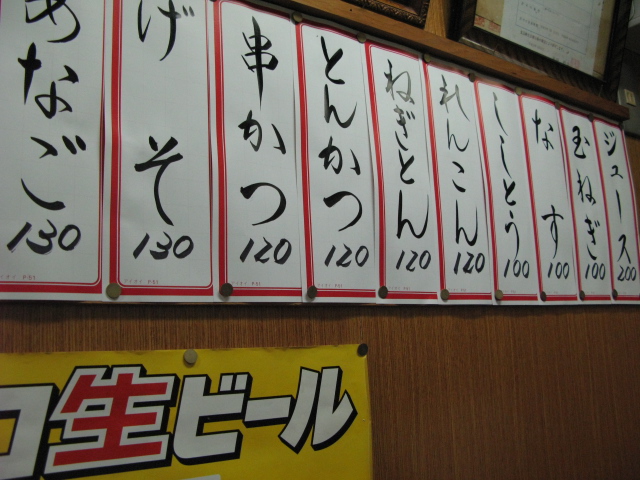 あなご 130
げそ 130
串かつ 120
とんかつ 120
ねぎとん 120
れんこん 120
ししとう 100
なす 100
玉ねぎ 100
ジュース 200
生ビール